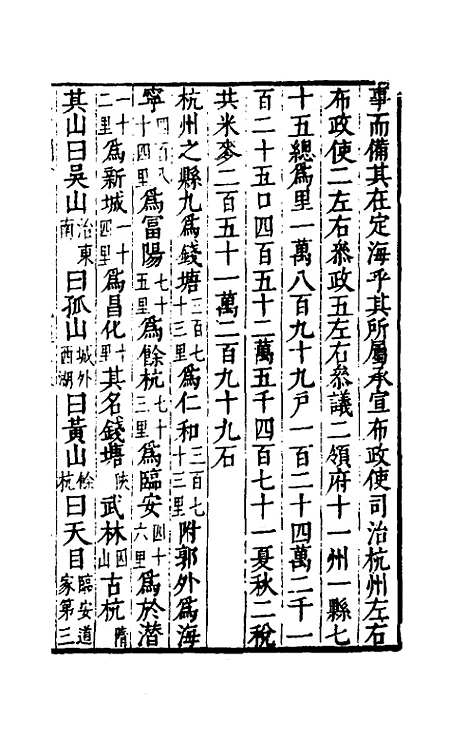 事而備其在定海乎其所屬承宣布政使司治杭州左右
布政使二左右叅政五左右叅議二領府十一州一縣七
十五總爲里一萬八百九十九戶一百二十四萬二千一
百二十五口四百五十二萬五千四百七十一夏秋二稅
共米麥二百五十一萬二百九十九石
杭州之縣九爲錢塘三百七十三里爲仁和三百七十三里附郭外爲海
寧四百八十四里爲富陽七十五里爲餘杭七十三里爲臨安四十六里爲於潛
一十二里爲新城一十四里爲昌化十里其名錢塘陜武林四山古杭隋
其山曰吳山治東南曰孤山城外西湖曰黃山餘杭曰天目臨安道家第三